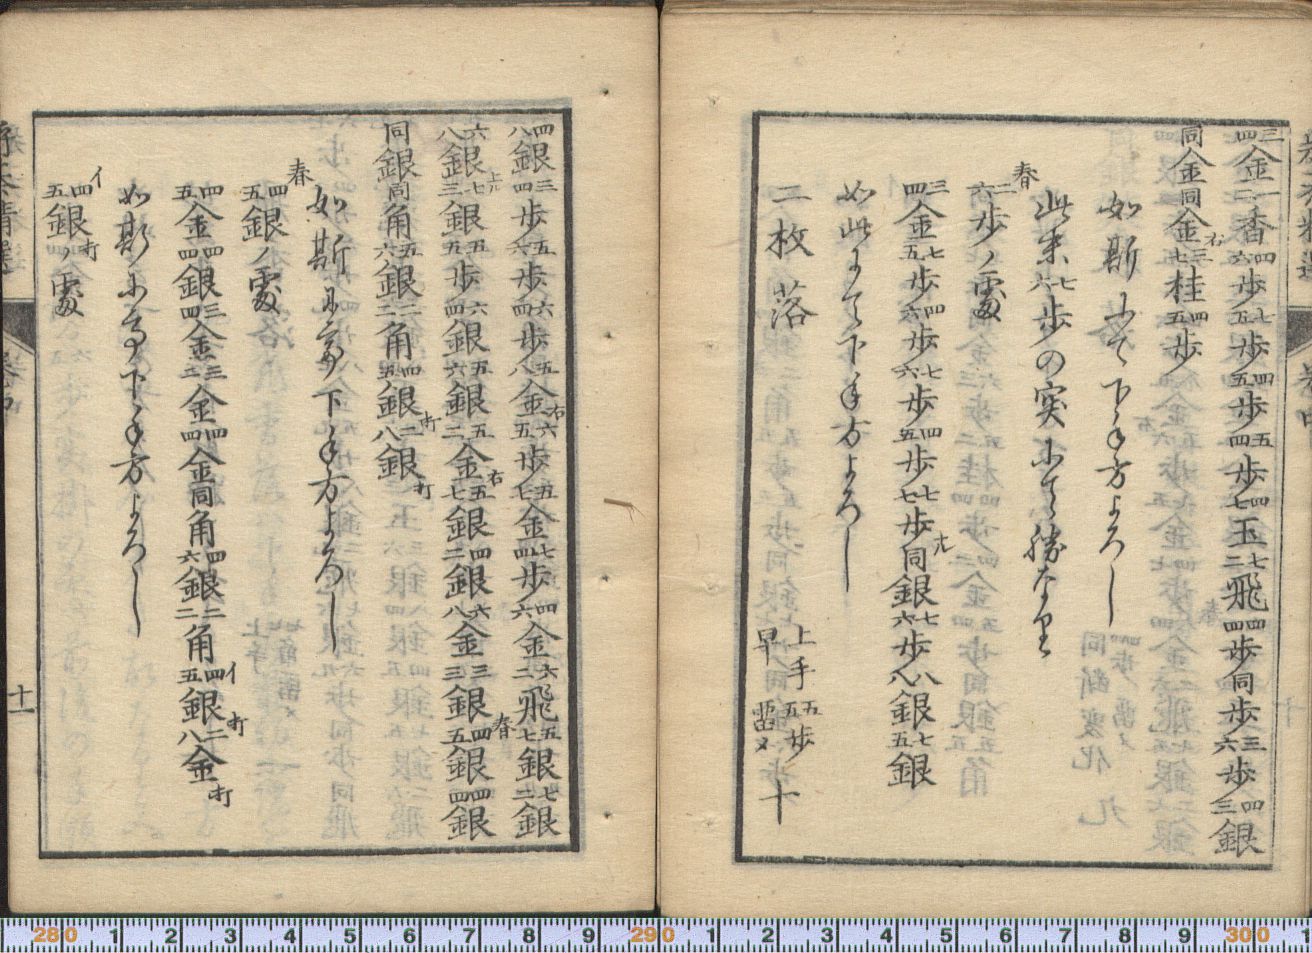 三四金一二香四六歩七五歩四五歩五四歩四七玉七二飛四四歩同歩三六歩四三銀
同金同金右三七桂四五歩
如斯にて下手方よろし
此末七六歩の突にて勝なり
春二六歩ノ處
三四金七五歩四六歩七六歩四五歩七七歩ナル同銀七六歩八八銀七五銀
如此にて下手方よろし
二枚落 上手五五歩早留メ 十
四八銀三四歩五六歩六四歩五八金右六五歩五七金七四歩四六金六二飛五七銀七二銀
六八銀七三銀上ル五五歩六四銀五六銀五二金右五七銀四二銀六八金三三銀春四五銀四四銀
同銀同角五六銀二二角四五銀打二八銀打
如斯にて下手方よろし
春四五銀ノ處
四五金四四銀三四金三三金四四金同角四六銀二二角イ四五銀打二八金打
如斯にて下手方よろし
イ四五銀打ノ處
十一
280 1 2 3 4 5 6 7 8 9 290 1 2 3 4 5 6 7 8 9 300 1